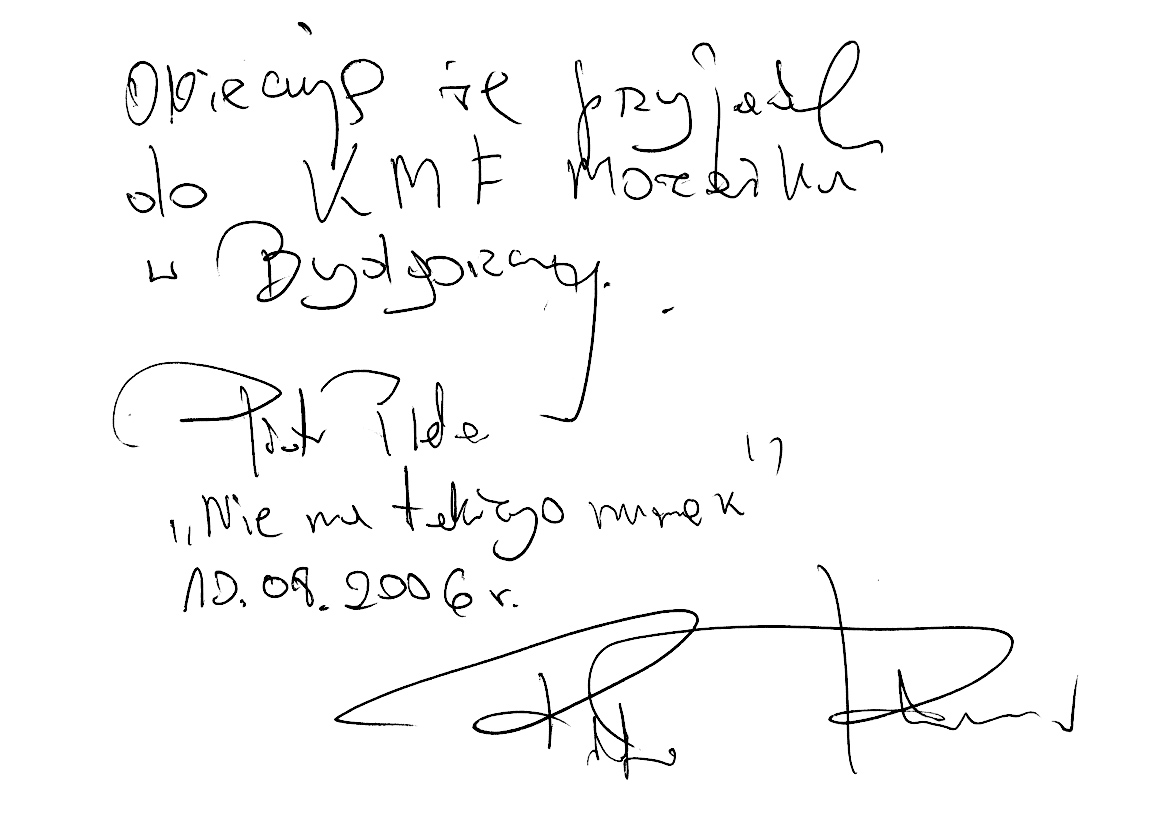 Obiecuję że przyjadę
do KMF Mozaika
w Bydgoszczy.
Piotr
„Nie ma takiego
10.08.2006 r.